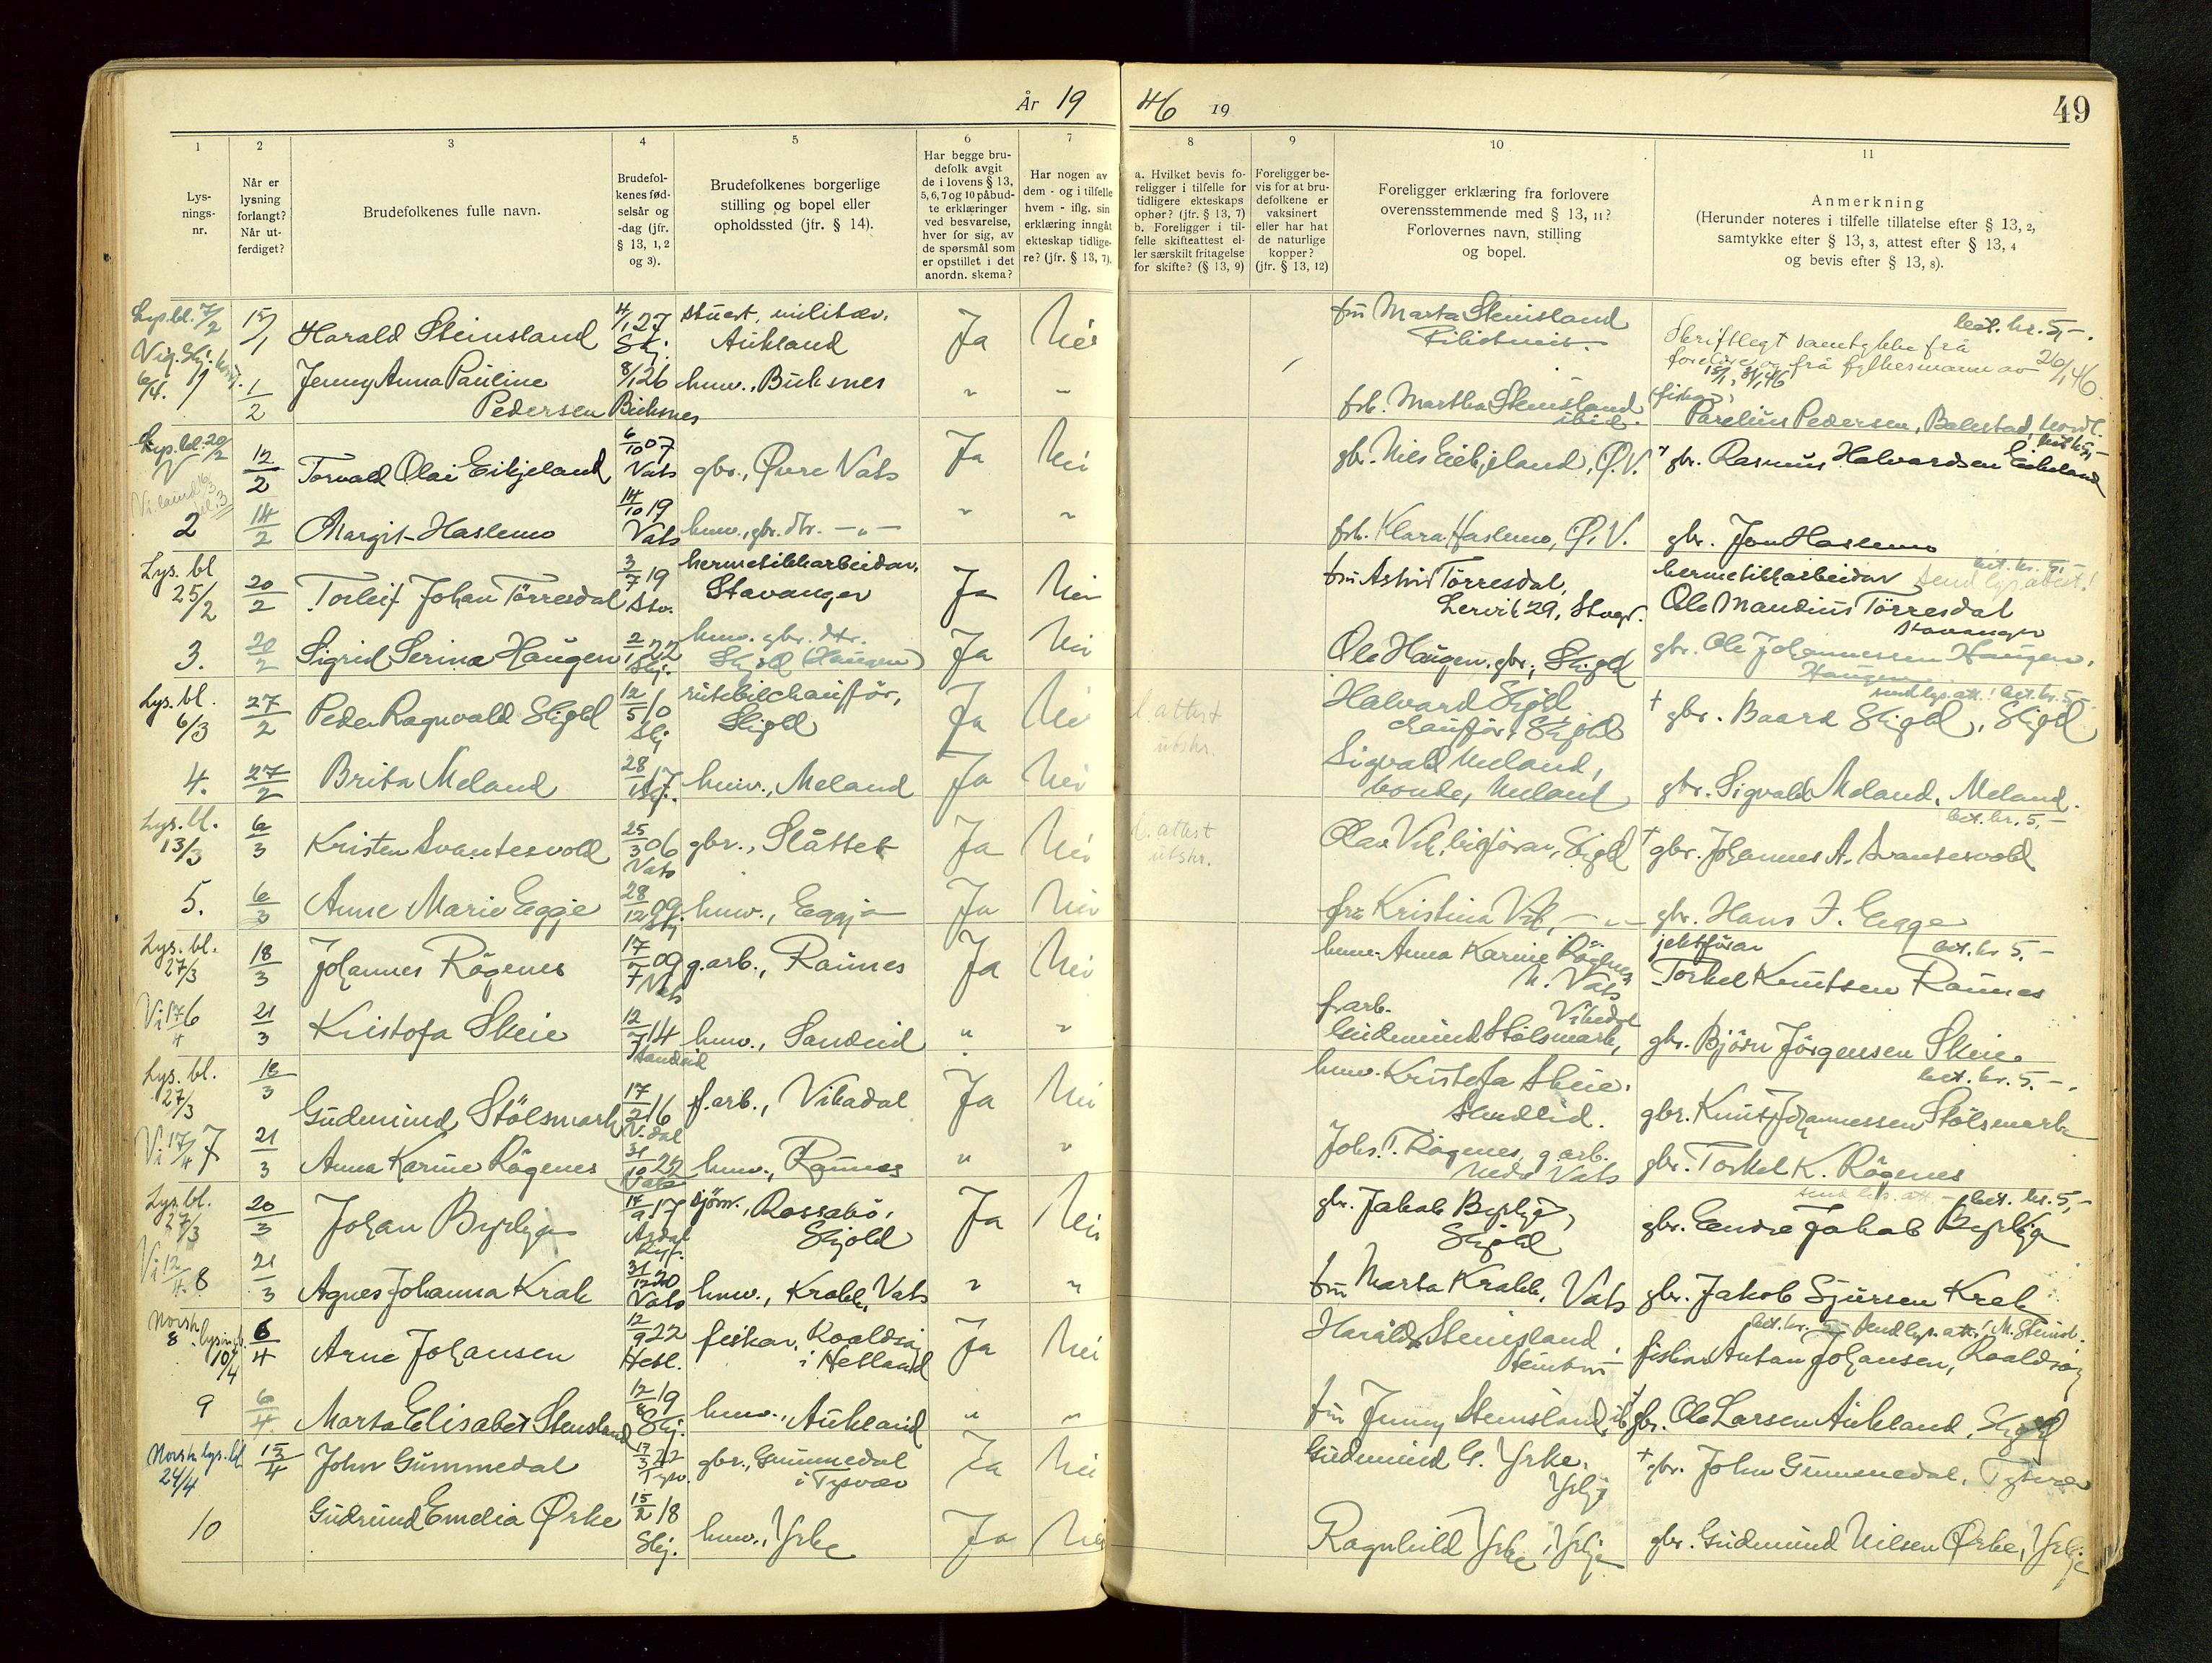 År 19
46 19
49
1
Lys-
nings-
nr.
2
Når er
lysning
forlangt?
Når ut-
ferdiget?
3
Brudefolkenes fulle navn.
4
Brudefol-
kenes fød-
selsår og
-dag (jfr.
§ 13, 1, 2
og 3).
5
Brudefolkenes borgerlige
stilling og bopel eller
opholdssted (jfr. § 14).
6
Har begge bru-
defolk avgit
de i lovens § 13,
5, 6, 7 og 10 påbud-
te erklæringer
ved besvarelse,
hver for sig, av
de spørsmål som
er opstillet i det
anordn. skema?
7
Har nogen av
dem - og i tilfelle
hvem - iflg. sin
erklæring inngåt
ekteskap tidlige-
re? (jfr. § 13, 7).
8
a. Hvilket bevis fo-
religger i tilfelle for
tidligere ekteskaps
ophør? (jfr. § 13, 7)
b. Foreligger i til-
felle skifteattest el-
ler særskilt fritagelse
for skifte? (§ 13, 9)
9
Foreligger be-
vis for at bru-
defolkene er
vaksinert
eller har hat
de naturlige
kopper?
(jfr. § 13, 12)
10
Foreligger erklæring fra forlovere
overensstemmende med § 13, 11?
Forlovernes navn, stilling
og bopel.
11
Anmerkning
(Herunder noteres i tilfelle tillatelse efter § 13, 2,
samtykke efter § 13, 3, attest efter § 13, 4
og bevis efter § 13, 8).
Lys.bl. 7/2 15/1 Harald Steinsland 4/1 27 Skj. stuert, militær, Aukland Ja Nei fru Marta Steinsland bet. kr. 5,-.
Skriftlegt samtykke frå
foreldre og frå fylkesmann av 26/1 46.
1 1/2 Jenny Anna Pauline Pedersen 8/1 26 Buksnes hmv., Buksnes " - frk. Martha Steinsland ibid. (fiskar) Parelius Pedersen, Balestad, Nordl.
Lys.bl. 20/2 12/2 Torvald Olai Eikjeland 6/10 07 Vats gbr., Øvre Vats Ja Nei gbr. Nils Eikjeland, Ø.V. gbr. Rasmus Halvardsen Eikeland
2 14/2 Margit Haslemo 14/10 19 Vats hmv., gbr. dtr. -"- " " frk. Klara Haslemo, Ø.V. gbr. Jon Haslemo
Lys. bl 25/2 20/2 Torleif Johan Törresdal 3/7 19 Stv. hermetikkarbeidar, Stavanger Ja Nei fru Astrid Törresdal, Lervik 29, Stvgr. bet. kr. 5,- Send lys.attest! hermetikkarbeidar Ole Maudius Törresdal Stavanger
3. 20/2 Sigrid Serina Haugen 2/1 22 Skj. hmv. gbr. dtr. Skjold (Haugen) Ja Nei Ole Haugen, gbr., Skjold gbr. Ole Johannessen Haugen, Haugen
Lys. bl. 6/3 27/2 Peder Ragnvald Skjold 12/5 10 Skj rutebilchauffør, Skjold Ja Nei attest utskr. Halvard Skjold chauffør, Skjold send lys.att.! bet. kr. 5,- + gbr. Baard Skjold, Skjold
4. 27/2 Brita Meland 28/1 17 Skj. hmv., Meland Ja Nei Sigvald Meland, bonde, Meland gbr. Sigvald Meland, Meland.
Lys. bl. 13/3 6/3 Kristen Svantesvold 25/3 06 Vats gbr., Slåttet Ja Nei attest utskr. Olav Vik, Skjold bet. kr. 5,- + gbr. Johannes A. Svantesvold
5. 6/3 Anne Marie Eggje 28/12 09 Skj. hmv., Eggja Ja Nei fru Kristina Vik, -"- gbr. Hans J. Egge
Lys. bl. 27/3 18/3 Johannes Rögenes 17/7 09 Vats g.arb., Raunes Ja Nei hmv. Anna Karine Rögenes N. Vats jektförar bet. kr 5.- Torkel Knutsen Raunes
Vi 17/4 6 21/3 Kristofa Skeie 12/7 14 Sandeid hmv., Sandeid " " f.arb. Gudmund Stölsmark, Vikedal gbr. Björn Jörgensen Skeie
Lys. bl. 27/3 18/3 Gudmund Stölsmark 17/2 16 V.dal f.arb., Vikadal Ja Nei hmv. Kristofa Skeie, Sandeid. bet. kr. 5.-. gbr. Knut Johannessen Stölsmark
Vi 17/4 7 21/3 Anna Karine Rögenes 31/10 22 Vats hmv., Raunes " " Johs. T. Rögenes, g.arb. Nedre Vats gbr. Torkel K. Rögenes
Lys. bl. 27/3 20/3 Johan Byrkja 17/9 17 Ardal Ryf. sjöm., Rossabö, Skjold Ja Nei gbr. Jakob Byrkja, Skjold send lys. att. - bet. kr. 5,- gbr. Endre Jakob Byrkja
Vi 12/4 8 21/3 Agnes Johanna Krak 31/12 20 Vats hmv., Krakk, Vats " " fru Marta Krakk, Vats gbr. Jakob Sjursen Krak
Norsk lysingsbl. 10/4 6/4 Arne Johansen 12/9 22 Hetl. fiskar, Roaldsöy i Hetland Ja Nei Harald Steinsland bet. kr. 5 Send lys. att! fiskar Antan Johansen, Roaldsöy
9 6/4 Marta Elisabet Stensland 12/8 19 Skj. hmv., Aukland " " fru Jenny Steinsland, ib. gbr. Ole Larsen Aukland, Skjold
Norsk lys. bl. 24/4 15/4 John Gummedal 17/3 22 Tysv. gbr., Gummedal i Tysvær Ja Nei Gudmund G. Yrke, Yrkje + gbr. John Gummedal, Tysvær
10 Gudrund Emelia Ørke 15/2 18 Skj. hmv., Yrke Ja Nei Ragnhild Yrke, Yrkje gbr. Gudmund Nilsen Ørke, Yrkje